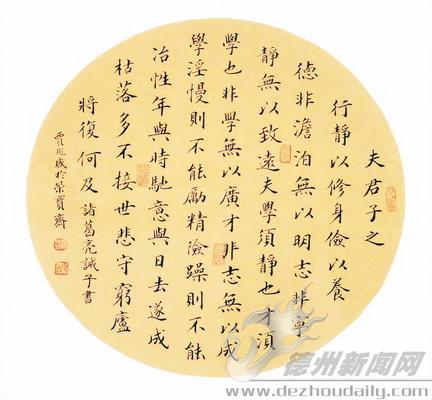 夫君子之
行靜以修身儉以養
德非澹泊無以明志非寧
靜無以致遠夫學須靜也才須
學也非學無以廣才非志無以成
學淫慢則不能勵精險躁則不能
冶性年與時馳意與日去遂成
枯落多不接世悲守窮廬
將復何及 諸葛亮誡子書
賈兆成於榮寶齋
德州新闻网
www.dezhoudaily.com